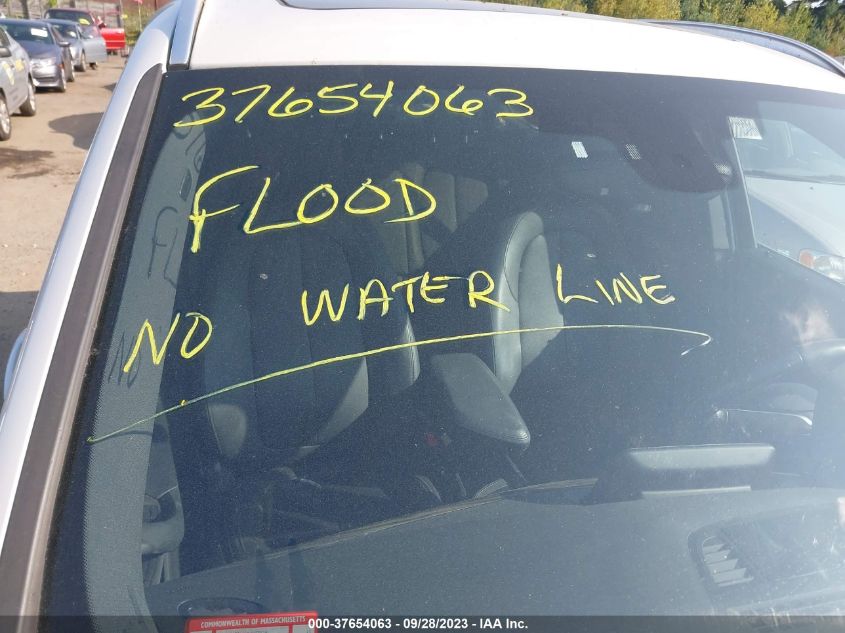 37654063
FLOOD
NO WATER LINE
COMMONWEALTH OF MASSACHUSETTS
000-37654063 - 09/28/2023 - IAA Inc.